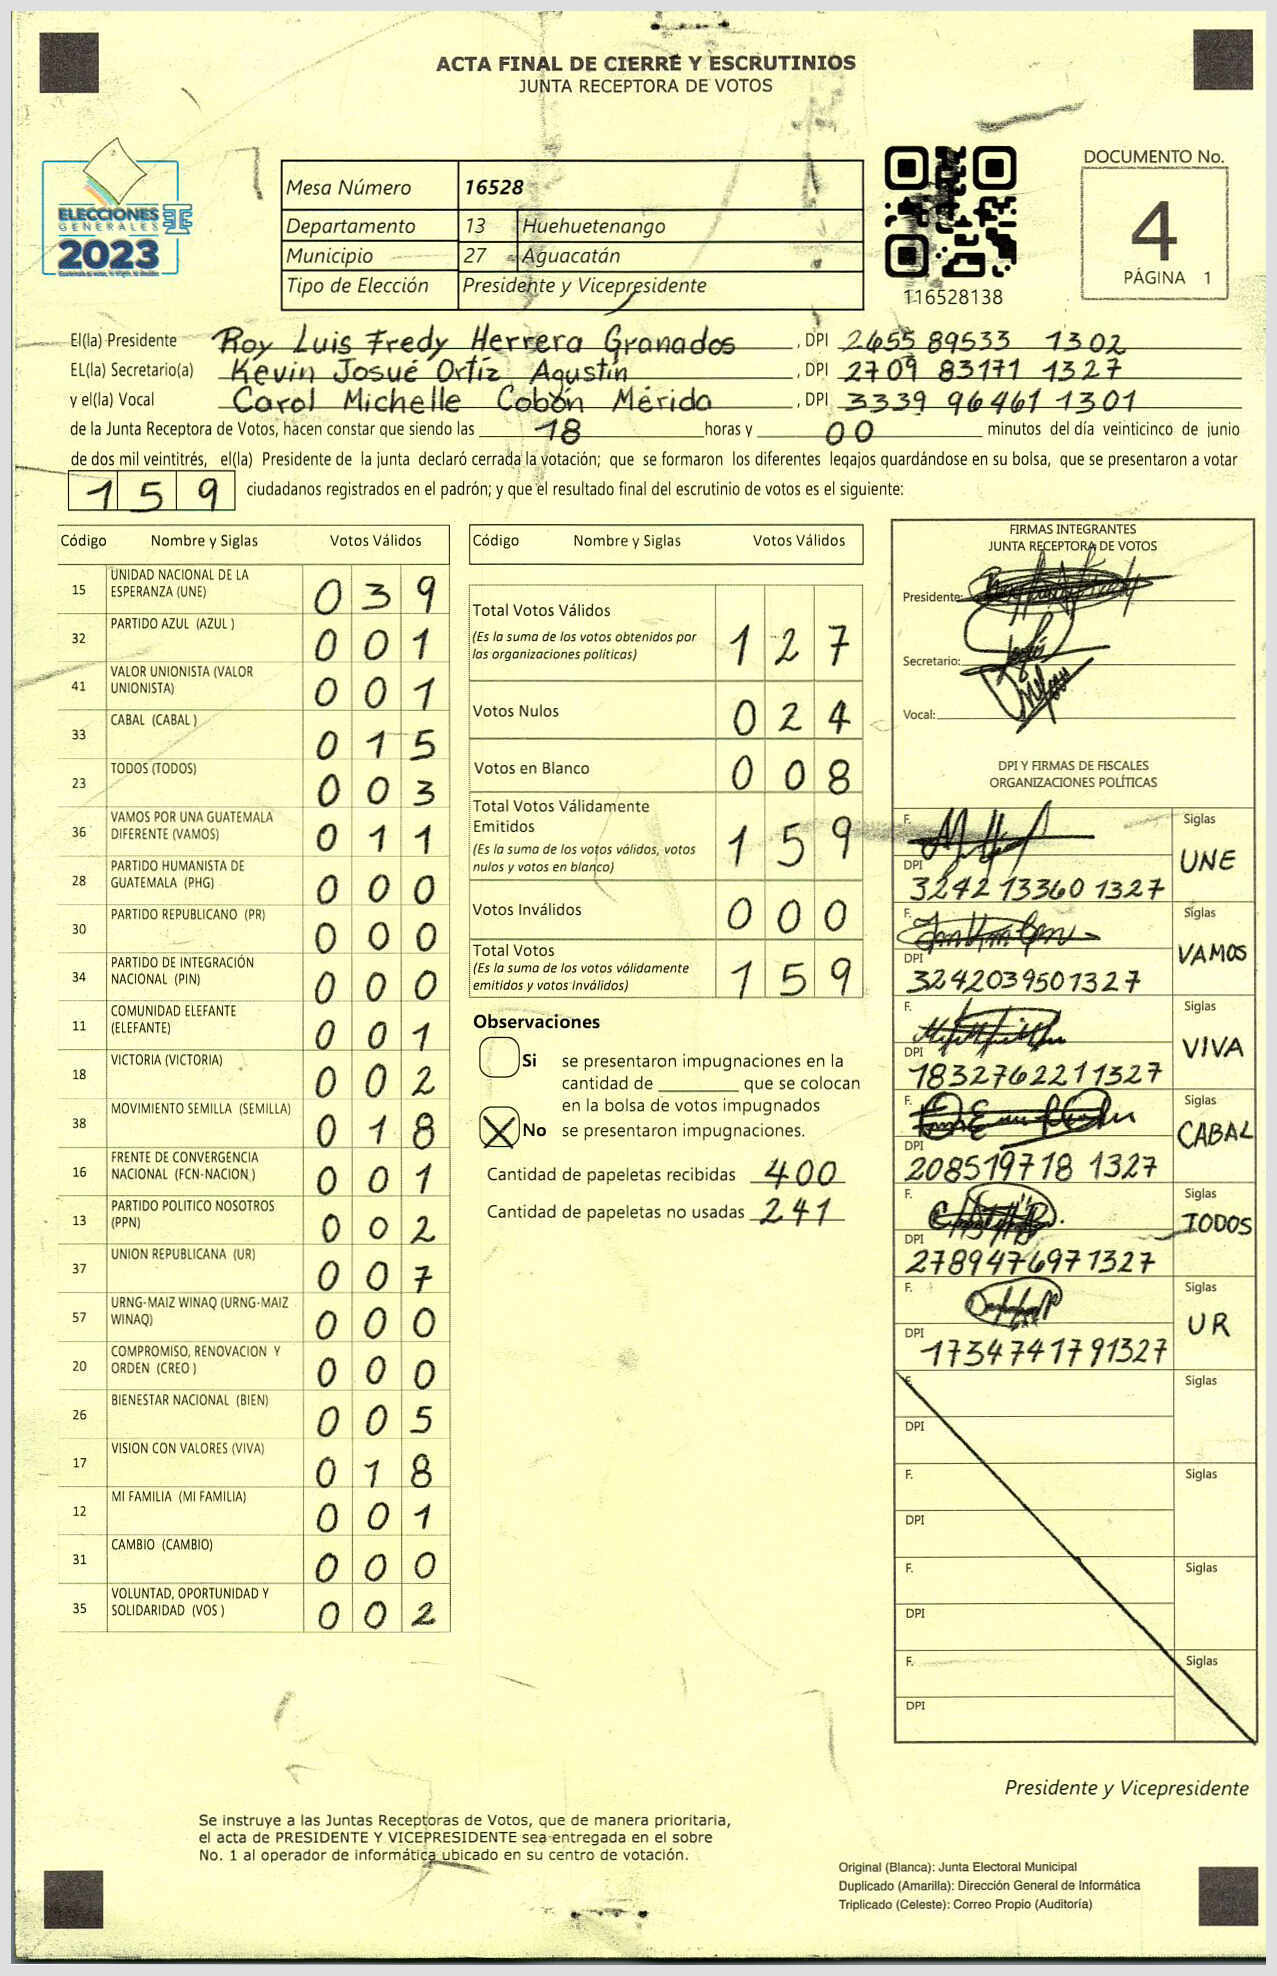 ACTA FINAL DE CIERRE Y ESCRUTINIOS
JUNTA RECEPTORA DE VOTOS
ELECCIONES
GENERALES
2023
Mesa Número 16528
Departamento 13 Huehuetenango
Municipio 27 Aguacatán
Tipo de Elección Presidente y Vicepresidente
116528138
DOCUMENTO No.
4
PÁGINA 1
El(la) Presidente Roy Luis Fredy Herrera Granados, DPI 2655 89533 1302
EL(la) Secretario(a) Kevin Josué Ortíz Agustín, DPI 2709 83171 1327
y el(la) Vocal Carol Michelle Cobón Mérida, DPI 3339 96461 1301
de la Junta Receptora de Votos, hacen constar que siendo las 18 horas y 00 minutos del día veinticinco de junio
de dos mil veintitrés, el(la) Presidente de la junta declaró cerrada la votación; que se formaron los diferentes legajos guardándose en su bolsa, que se presentaron a votar
159 ciudadanos registrados en el padrón; y que el resultado final del escrutinio de votos es el siguiente:
Código Nombre y Siglas Votos Válidos
15 UNIDAD NACIONAL DE LA ESPERANZA (UNE) 039
32 PARTIDO AZUL (AZUL ) 001
41 VALOR UNIONISTA (VALOR UNIONISTA) 001
33 CABAL (CABAL ) 015
23 TODOS (TODOS) 003
36 VAMOS POR UNA GUATEMALA DIFERENTE (VAMOS) 011
28 PARTIDO HUMANISTA DE GUATEMALA (PHG) 000
30 PARTIDO REPUBLICANO (PR) 000
34 PARTIDO DE INTEGRACIÓN NACIONAL (PIN) 000
11 COMUNIDAD ELEFANTE (ELEFANTE) 001
18 VICTORIA (VICTORIA) 002
38 MOVIMIENTO SEMILLA (SEMILLA) 018
16 FRENTE DE CONVERGENCIA NACIONAL (FCN-NACION ) 001
13 PARTIDO POLITICO NOSOTROS (PPN) 002
37 UNION REPUBLICANA (UR) 007
57 URNG-MAIZ WINAQ (URNG-MAIZ WINAQ) 000
20 COMPROMISO, RENOVACION Y ORDEN (CREO ) 000
26 BIENESTAR NACIONAL (BIEN) 005
17 VISION CON VALORES (VIVA) 018
12 MI FAMILIA (MI FAMILIA) 001
31 CAMBIO (CAMBIO) 000
35 VOLUNTAD, OPORTUNIDAD Y SOLIDARIDAD (VOS ) 002
Código Nombre y Siglas Votos Válidos
Total Votos Válidos 127
(Es la suma de los votos obtenidos por
las organizaciones políticas)
Votos Nulos 024
Votos en Blanco 008
Total Votos Válidamente
Emitidos 159
(Es la suma de los votos válidos, votos
nulos y votos en blanco)
Votos Inválidos 000
Total Votos 159
(Es la suma de los votos válidamente
emitidos y votos inválidos)
Observaciones
Si se presentaron impugnaciones en la
cantidad de que se colocan
en la bolsa de votos impugnados
X No se presentaron impugnaciones.
Cantidad de papeletas recibidas 400
Cantidad de papeletas no usadas 241
FIRMAS INTEGRANTES
JUNTA RECEPTORA DE VOTOS
Presidente:
Secretario:
Vocal:
DPI Y FIRMAS DE FISCALES
ORGANIZACIONES POLÍTICAS
F. Siglas UNE
DPI 3242 13360 1327
F. Siglas VAMOS
DPI 3242039501327
F. Siglas VIVA
DPI 1832762211327
F. Siglas CABAL
DPI 208519718 1327
F. Siglas TODOS
DPI 2789476971327
F. Siglas UR
DPI 1734741791327
F. Siglas
DPI
F. Siglas
DPI
F. Siglas
DPI
F. Siglas
DPI
Presidente y Vicepresidente
Se instruye a las Juntas Receptoras de Votos, que de manera prioritaria,
el acta de PRESIDENTE Y VICEPRESIDENTE sea entregada en el sobre
No. 1 al operador de informática ubicado en su centro de votación.
Original (Blanca): Junta Electoral Municipal
Duplicado (Amarilla): Dirección General de Informática
Triplicado (Celeste): Correo Propio (Auditoría)